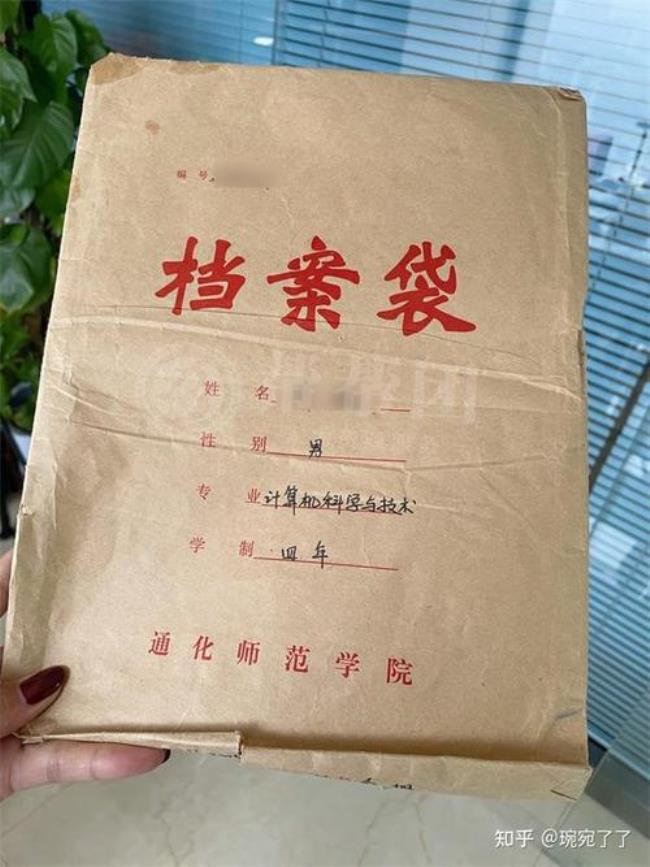 编号
档案袋
姓名
性别 男
专业 计算机科学与技术
学制 四年
通化师范学院
知乎 @琬宛了了